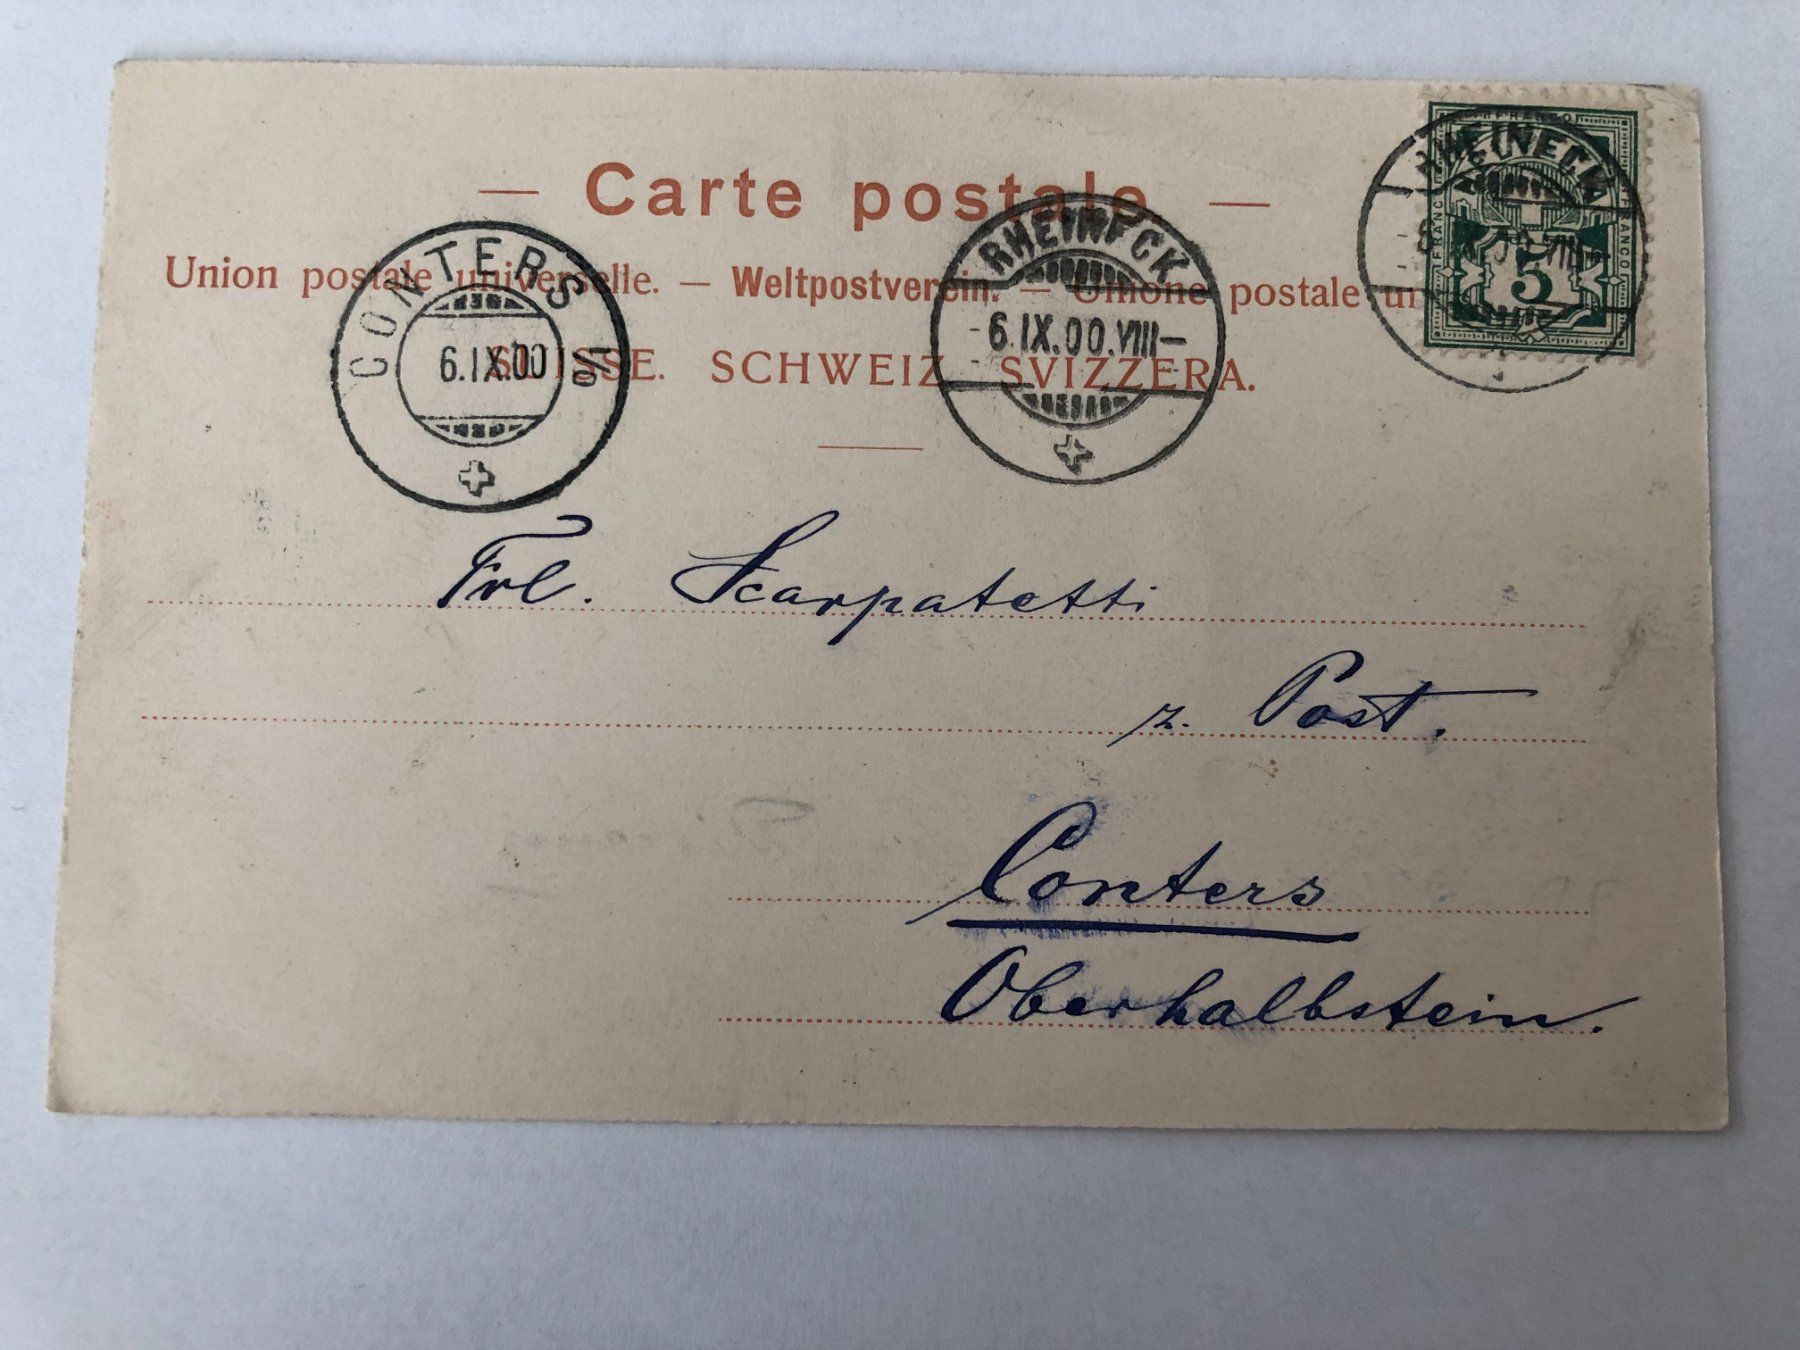 — Carte postale —
Union postale universelle. — Weltpostverein. — Unione postale
SUISSE. SCHWEIZ SVIZZERA.
CONTERS
6.IX.00
RHEINECK
6.IX.00.VIII—
RHEINECK
FRANCO
FRANCO
5
Frl. Scarpatetti
z. Post.
Conters
Oberhalbstein.